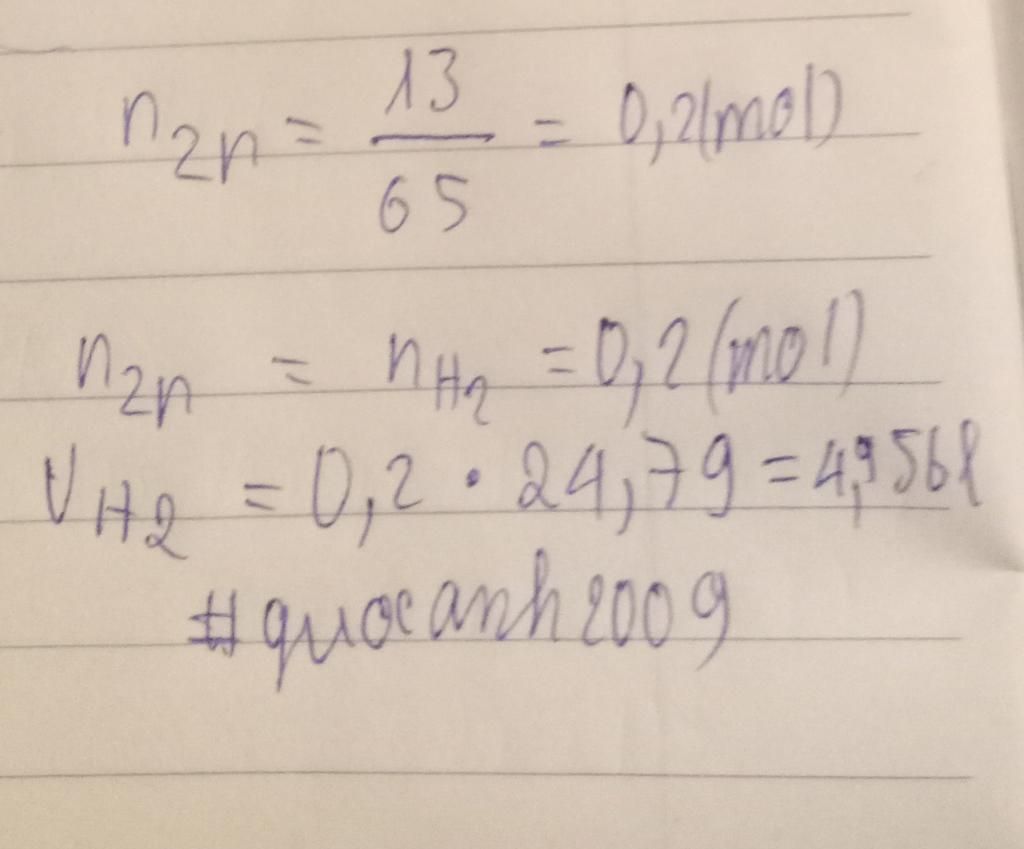 n_Zn = 13/65 = 0,2(mol)
n_Zn = n_H2 = 0,2(mol)
V_H2 = 0,2 . 24,79 = 4,956l
#quocanh2009